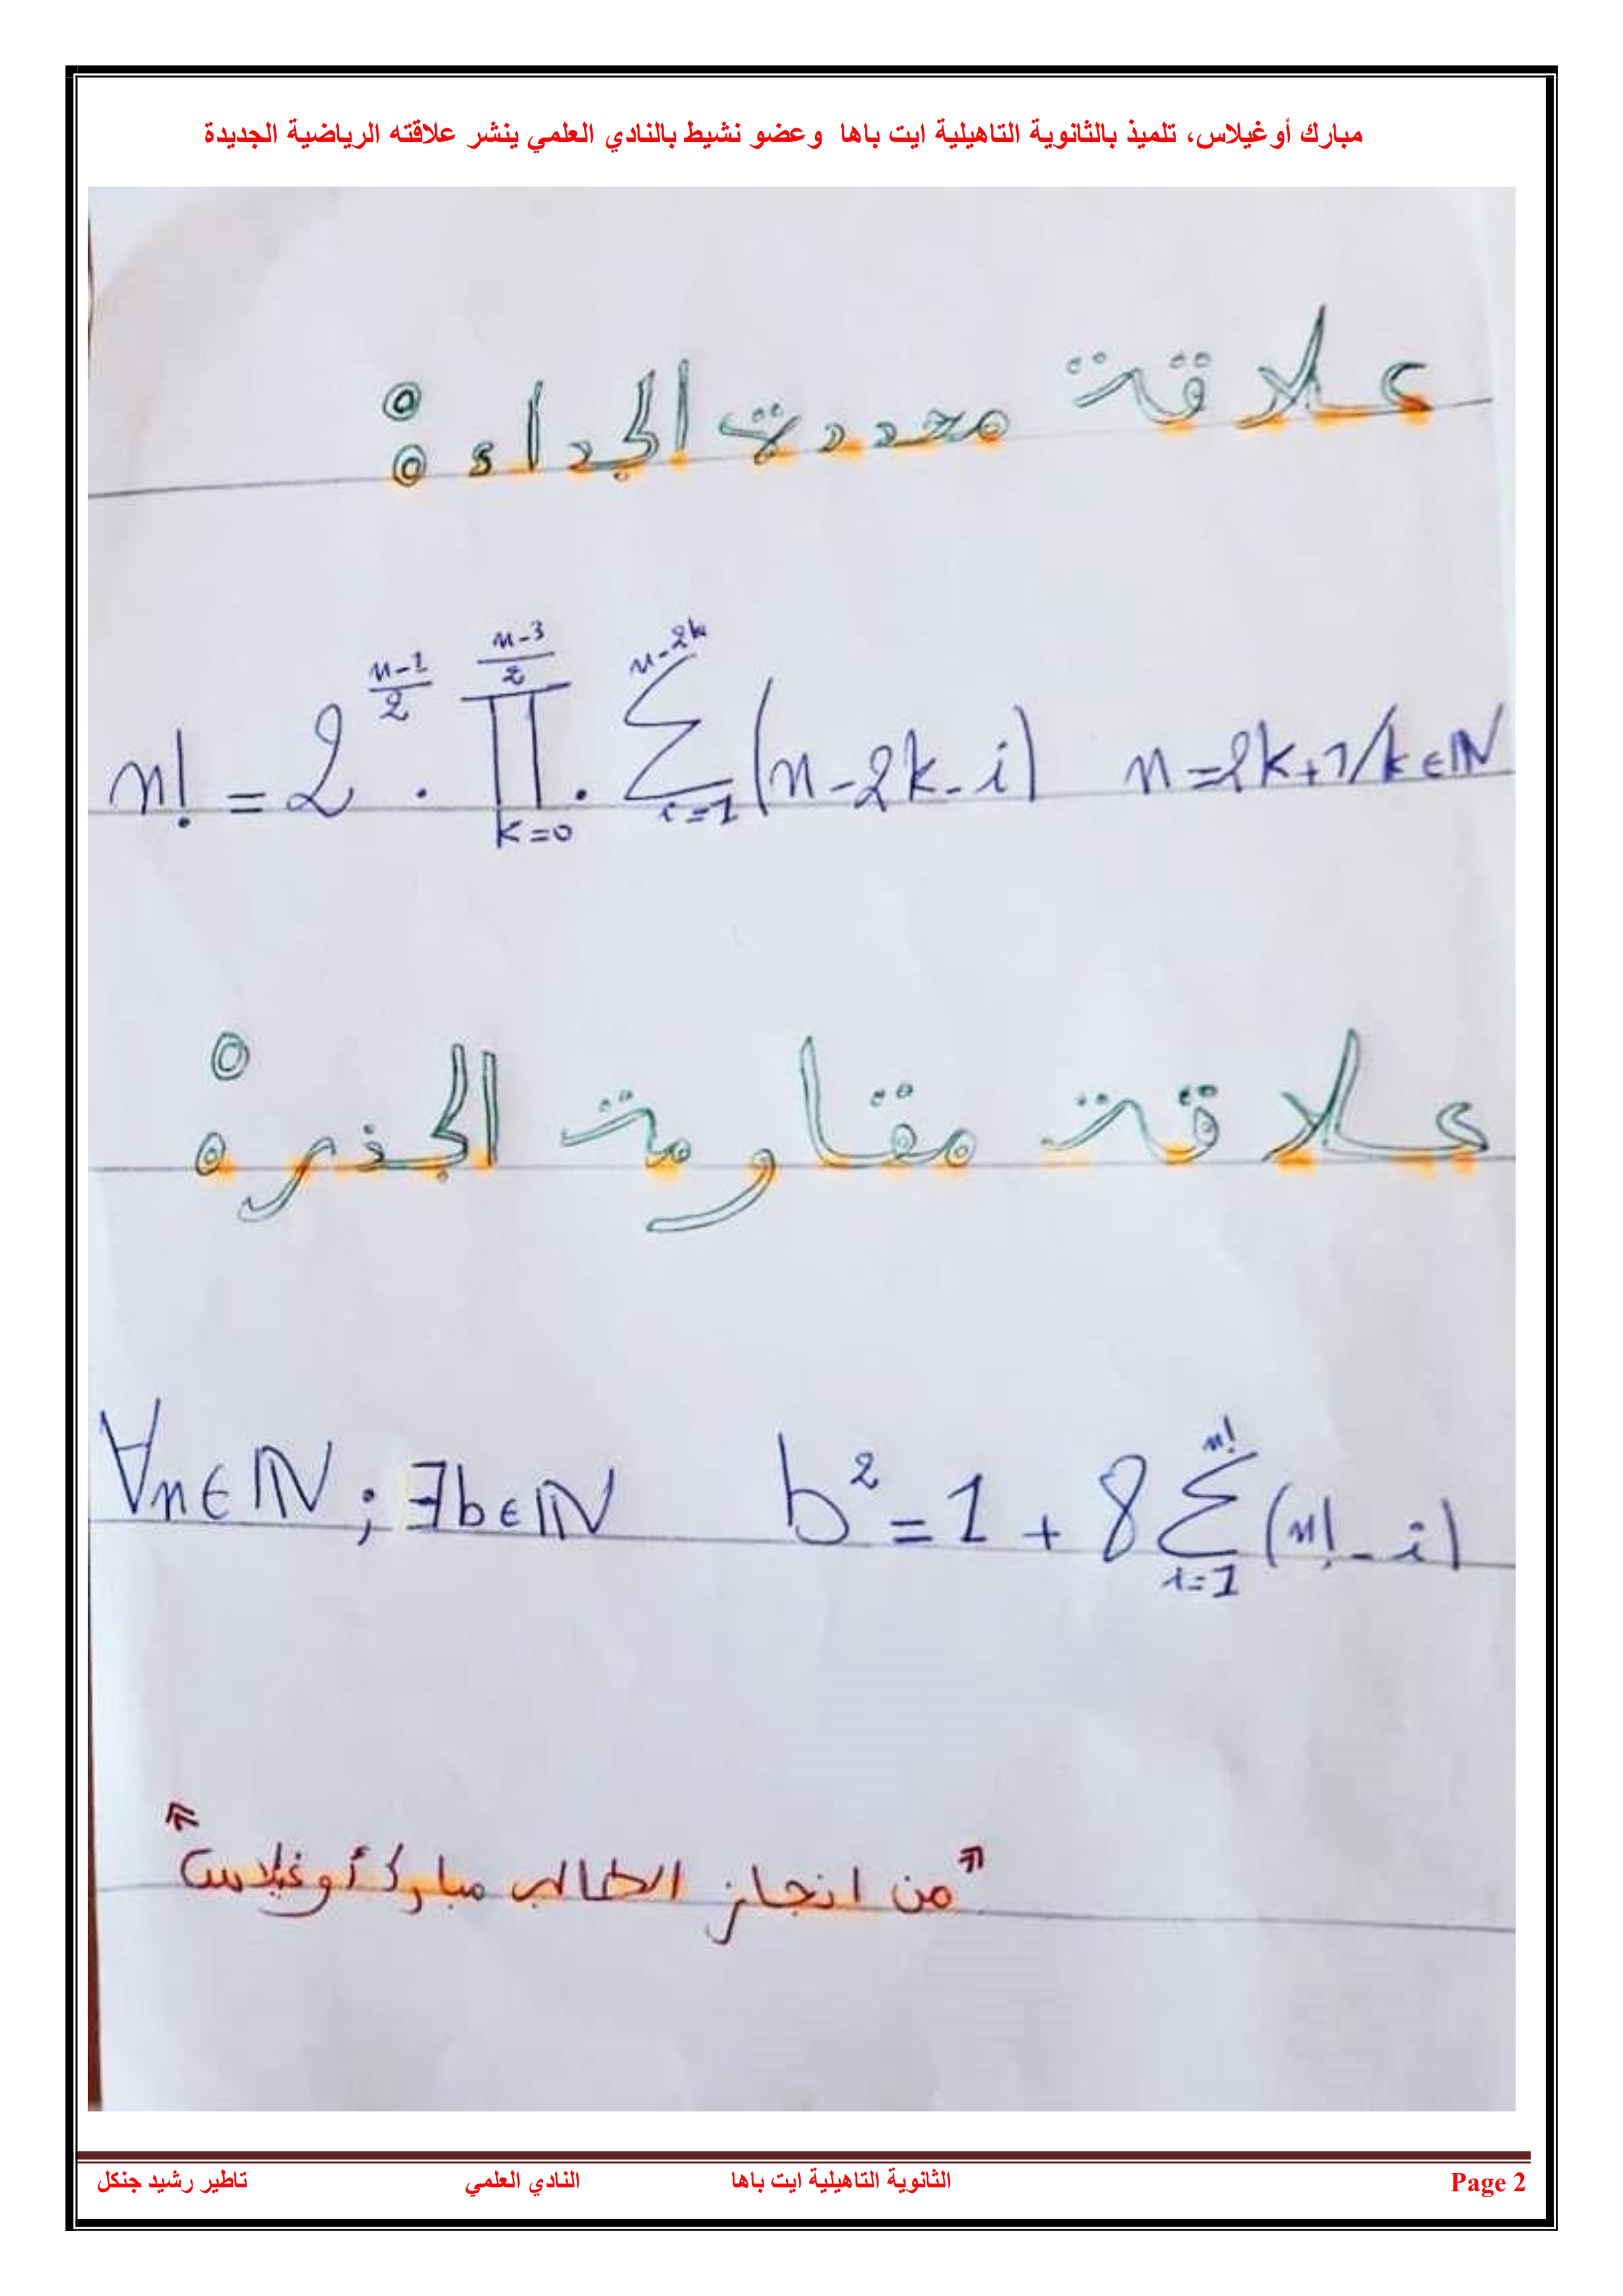 مبارك أوغيلاس، تلميذ بالثانوية التاهيلية ايت باها وعضو نشيط بالنادي العلمي ينشر علاقته الرياضية الجديدة
علاقة محددة الجداء:
n! = 2^{\frac{n-1}{2}} \cdot \prod_{k=0}^{\frac{n-3}{2}} \cdot \sum_{i=1}^{n-2k} (n-2k-i) n=2k+1/k∈ℕ
علاقة مقاومة الجذر:
∀n∈ℕ ; ∃b∈ℕ b² = 1 + 8 \sum_{i=1}^{n!} (n!-i)
"من انجاز الطالب مبارك أوغيلاس"
الثانوية التاهيلية ايت باها النادي العلمي تاطير رشيد جنكل
Page 2